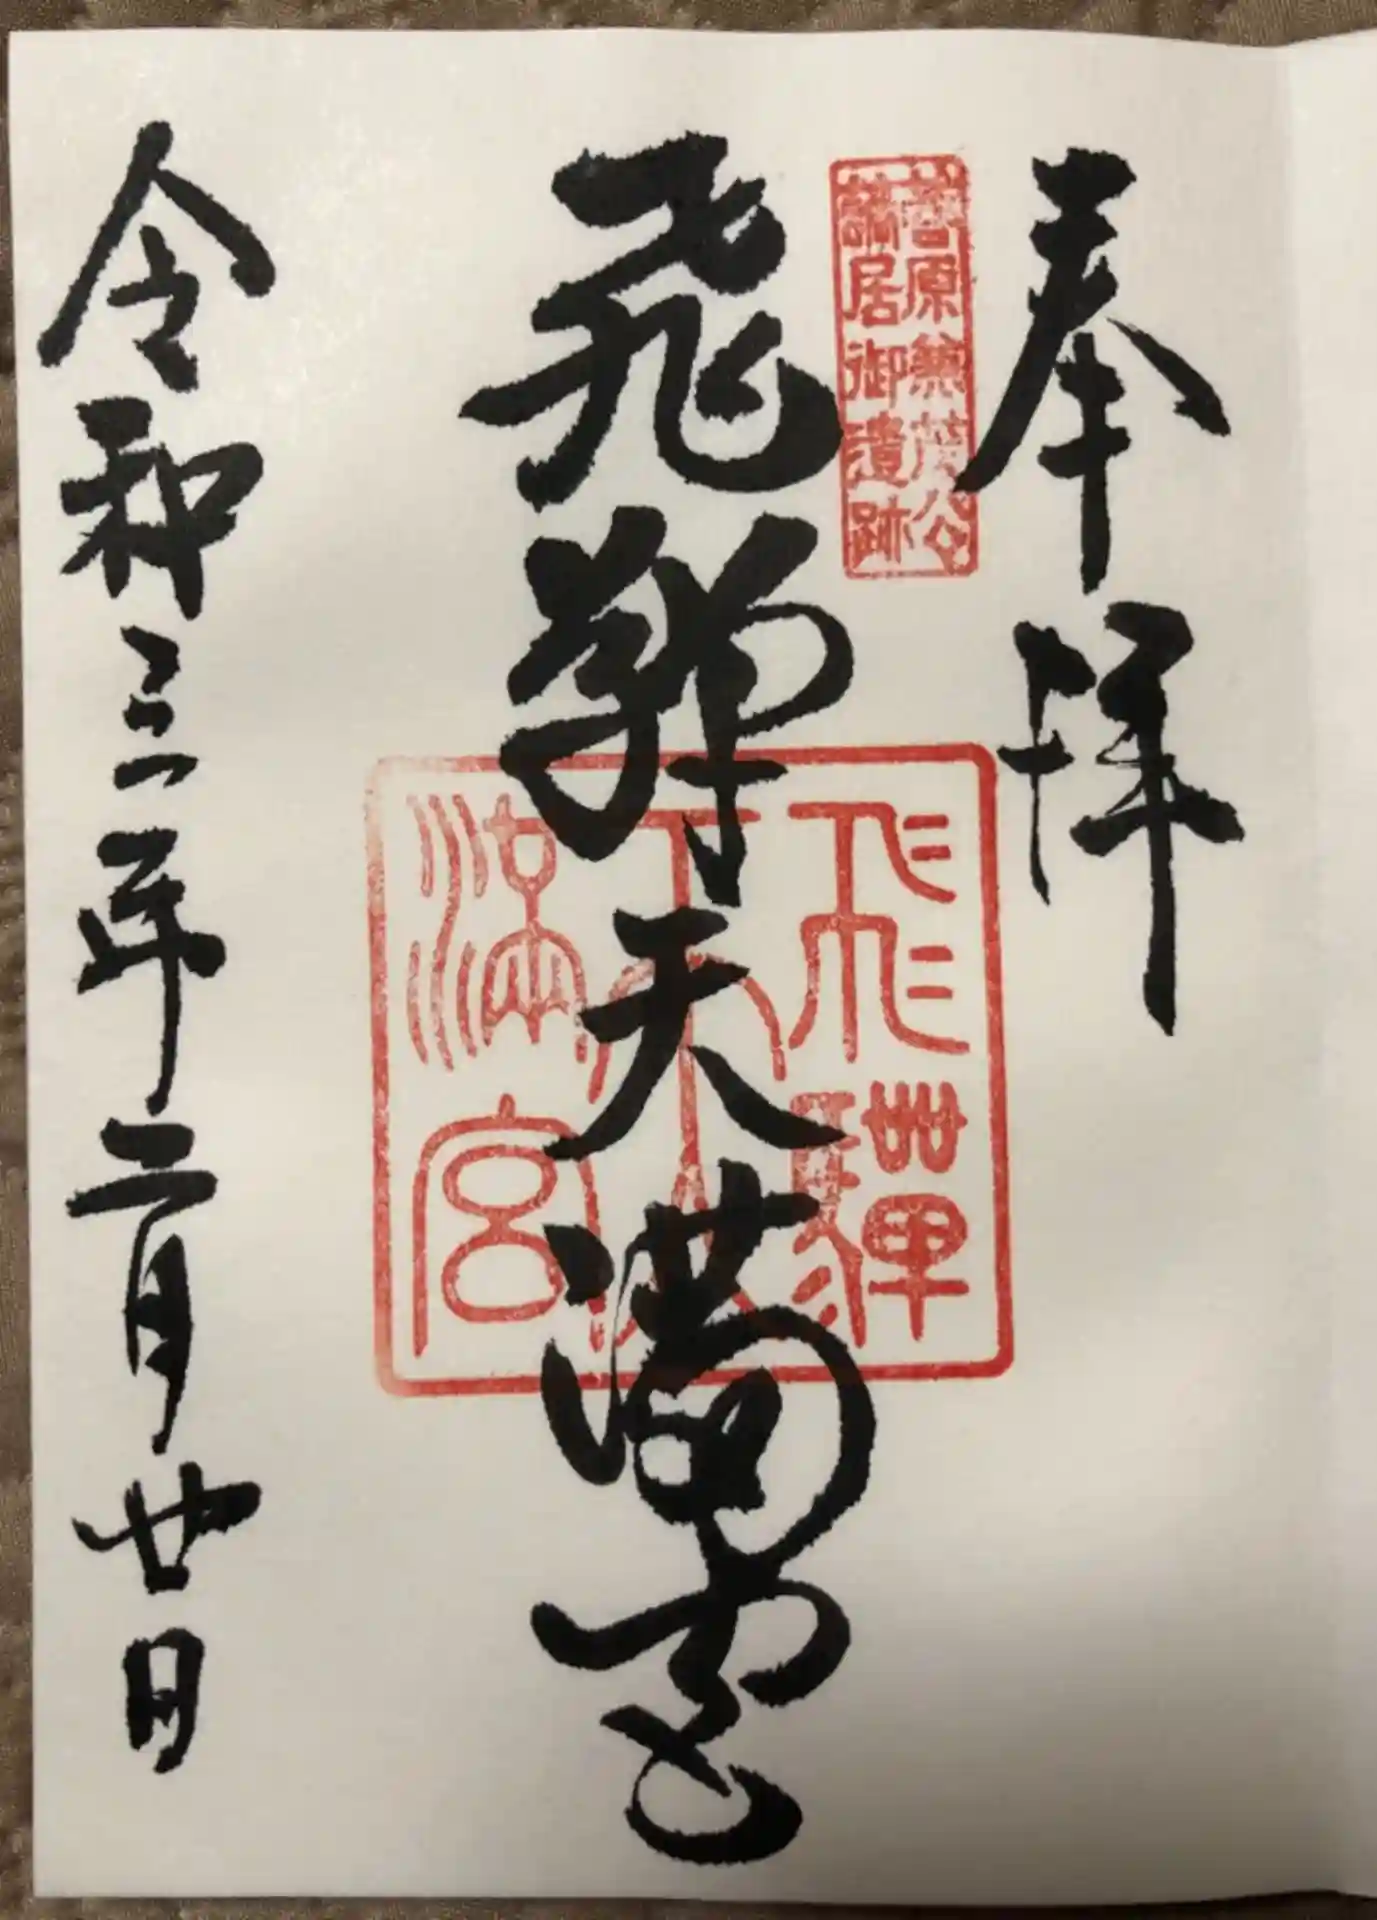 奉拝
菅原兼茂公
謫居御遺跡
飛騨天満宮
飛驒
天
満宮
令和三年二月廿日